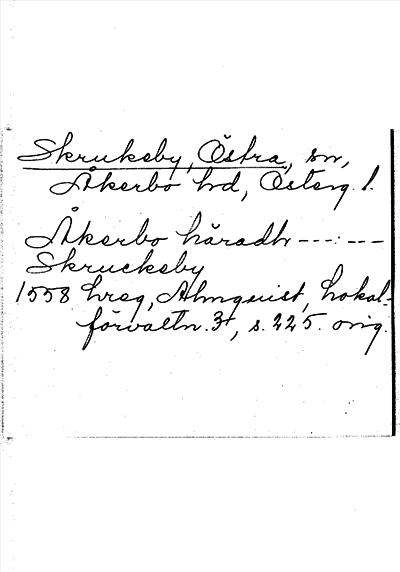 Skrukeby, Östra, sn,
Åkerbo hd, Österg. l.
Åkerbo häradh ---:---
Skruckeby
1558 hreg, Almquist, Lokal-
förvaltn. 3, s. 225. orig.